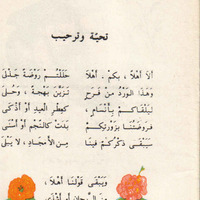 تحيّة وترحيب
ألا أهلاً ، بكم . أهلاً حللتُم روضةً جذلى
وهذا الوردُ من فرحٍ تزيّنَ بهجةً ، وحلّى
تلقّاكم بأنسامٍ كعطرِ العيدِ أو أذكى
فروضتُنا بزورتِكم بدت كالنّجمِ أو أسنى
سيبقى ذكرُكم فينا من الأمجادِ ، لا يبلى
ويبقى قولُنا أهلاً ،
من الريحان أو